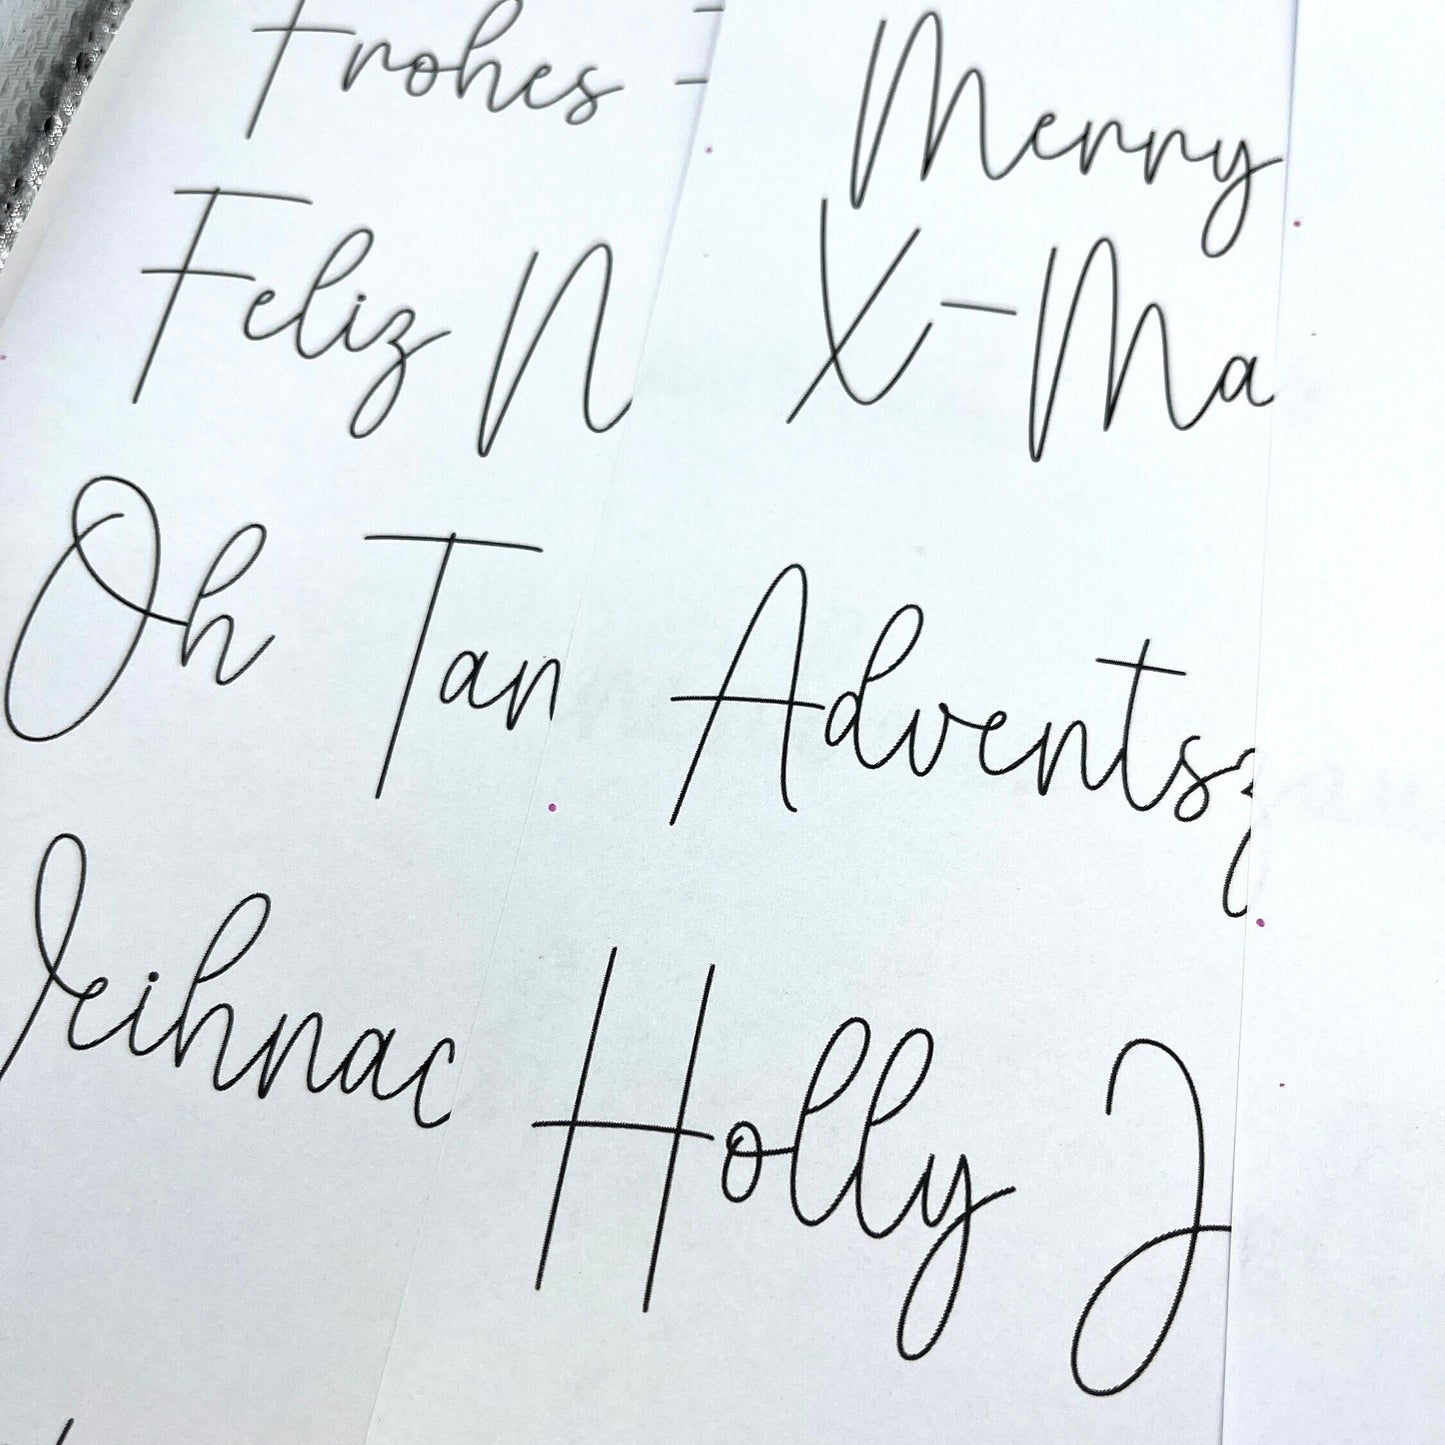 Frohes
Feliz N
Oh Tan
eihnac
Merry
X-Ma
Adventsz
Holly J